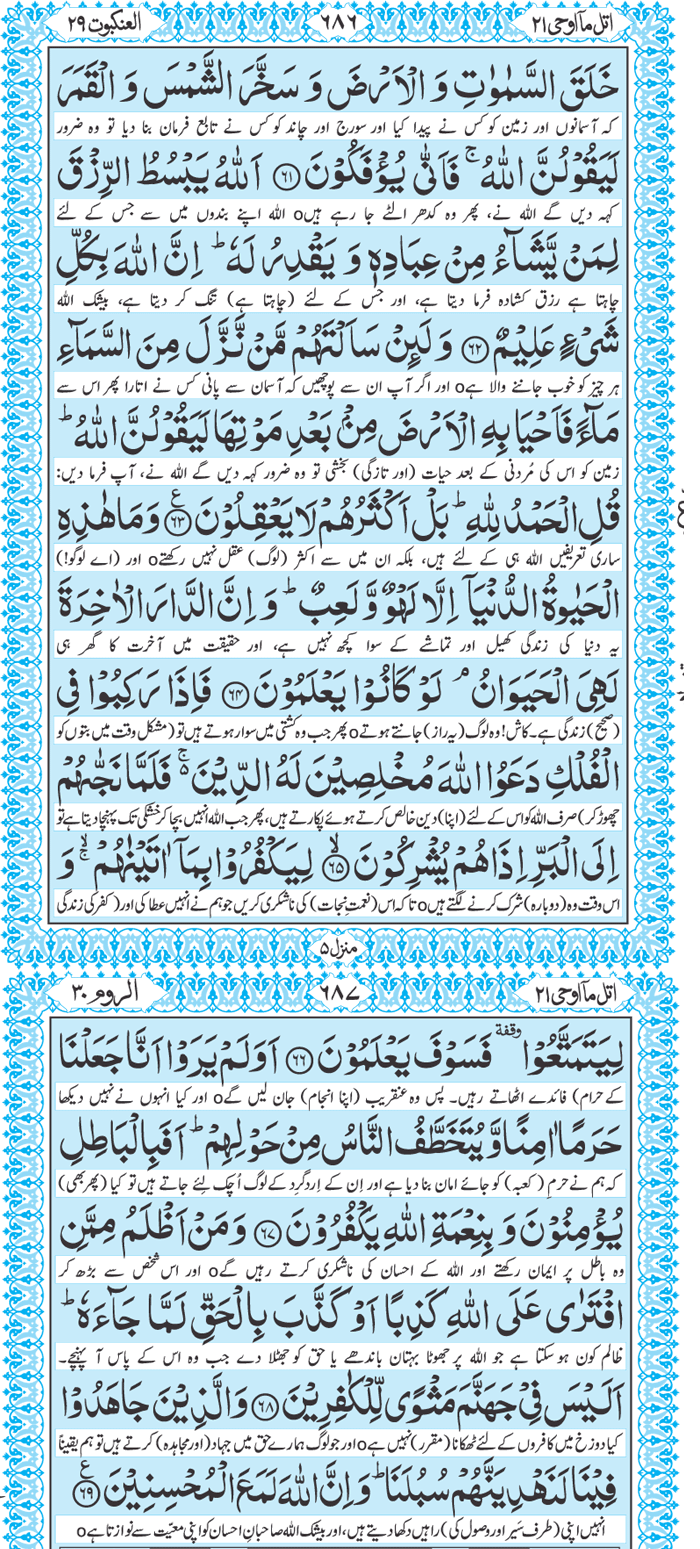 اتل مآ اوحی ۲۱ ۶۸۶ العنکبوت ۲۹
خَلَقَ السَّمٰوٰتِ وَ الْاَرْضَ وَ سَخَّرَ الشَّمْسَ وَ الْقَمَرَ
کہ آسمانوں اور زمین کو کس نے پیدا کیا اور سورج اور چاند کو کس نے تابع فرمان بنا دیا تو وہ ضرور
لَیَقُوْلُنَّ اللّٰهُ ۚ فَاَنّٰی یُؤْفَكُوْنَ ﴿۶۱﴾ اَللّٰهُ یَبْسُطُ الرِّزْقَ
کہہ دیں گے اللہ نے، پھر وہ کدھر الٹے جا رہے ہیںo اللہ اپنے بندوں میں سے جس کے لئے
لِمَنْ یَّشَآءُ مِنْ عِبَادِهٖ وَ یَقْدِرُ لَهٗ ؕ اِنَّ اللّٰهَ بِكُلِّ
چاہتا ہے رزق کشادہ فرما دیتا ہے، اور جس کے لئے (چاہتا ہے) تنگ کر دیتا ہے، بیشک اللہ
شَیْءٍ عَلِیْمٌ ﴿۶۲﴾ وَ لَىِٕنْ سَاَلْتَهُمْ مَّنْ نَّزَّلَ مِنَ السَّمَآءِ
ہر چیز کو خوب جاننے والا ہےo اور اگر آپ ان سے پوچھیں کہ آسمان سے پانی کس نے اتارا پھر اس سے
مَآءً فَاَحْیَا بِهِ الْاَرْضَ مِنْۢ بَعْدِ مَوْتِهَا لَیَقُوْلُنَّ اللّٰهُ ؕ
زمین کو اس کی مُردنی کے بعد حیات (اور تازگی) بخشی تو وہ ضرور کہہ دیں گے اللہ نے، آپ فرما دیں:
قُلِ الْحَمْدُ لِلّٰهِ ؕ بَلْ اَكْثَرُهُمْ لَا یَعْقِلُوْنَ ﴿۶۳﴾ ع وَ مَا هٰذِهِ
ساری تعریفیں اللہ ہی کے لئے ہیں، بلکہ ان میں سے اکثر (لوگ) عقل نہیں رکھتےo اور (اے لوگو!)
الْحَیٰوةُ الدُّنْیَاۤ اِلَّا لَهْوٌ وَّ لَعِبٌ ؕ وَ اِنَّ الدَّارَ الْاٰخِرَةَ
یہ دنیا کی زندگی کھیل اور تماشے کے سوا کچھ نہیں ہے، اور حقیقت میں آخرت کا گھر ہی
لَهِیَ الْحَیَوَانُ ۘ لَوْ كَانُوْا یَعْلَمُوْنَ ﴿۶۴﴾ فَاِذَا رَكِبُوْا فِی
(صحیح) زندگی ہے۔ کاش! وہ لوگ (یہ راز) جانتے ہوتےo پھر جب وہ کشتی میں سوار ہوتے ہیں تو (مشکل وقت میں بتوں کو
الْفُلْكِ دَعَوُا اللّٰهَ مُخْلِصِیْنَ لَهُ الدِّیْنَ ۚ۬ فَلَمَّا نَجّٰىهُمْ
چھوڑ کر) صرف اللہ کو اس کے لئے (اپنا) دین خالص کرتے ہوئے پکارتے ہیں، پھر جب اللہ انہیں بچا کر خشکی تک پہنچا دیتا ہے تو
اِلَی الْبَرِّ اِذَا هُمْ یُشْرِكُوْنَ ﴿۶۵﴾ۙ لِیَكْفُرُوْا بِمَاۤ اٰتَیْنٰهُمْ ۚۙ وَ
اس وقت وہ (دوبارہ) شرک کرنے لگتے ہیںo تاکہ اس (نعمتِ نجات) کی ناشکری کریں جو ہم نے انہیں عطا کی اور (کفر کی زندگی
منزل ۵
اتل مآ اوحی ۲۱ ۶۸۷ الروم ۳۰
لِیَتَمَتَّعُوْا ۥ وقفة فَسَوْفَ یَعْلَمُوْنَ ﴿۶۶﴾ اَوَ لَمْ یَرَوْا اَنَّا جَعَلْنَا
کے حرام) فائدے اٹھاتے رہیں۔ پس وہ عنقریب (اپنا انجام) جان لیں گےo اور کیا انہوں نے نہیں دیکھا
حَرَمًا اٰمِنًا وَّ یُتَخَطَّفُ النَّاسُ مِنْ حَوْلِهِمْ ؕ اَفَبِالْبَاطِلِ
کہ ہم نے حرمِ (کعبہ) کو جائے امان بنا دیا ہے اور اِن کے اِردگرد کے لوگ اُچک لئے جاتے ہیں تو کیا (پھر بھی)
یُؤْمِنُوْنَ وَ بِنِعْمَةِ اللّٰهِ یَكْفُرُوْنَ ﴿۶۷﴾ وَ مَنْ اَظْلَمُ مِمَّنِ
وہ باطل پر ایمان رکھتے اور اللہ کے احسان کی ناشکری کرتے رہیں گےo اور اس شخص سے بڑھ کر
افْتَرٰی عَلَی اللّٰهِ كَذِبًا اَوْ كَذَّبَ بِالْحَقِّ لَمَّا جَآءَهٗ ؕ
ظالم کون ہو سکتا ہے جو اللہ پر جھوٹا بہتان باندھے یا حق کو جھٹلا دے جب وہ اس کے پاس آ پہنچے۔
اَلَیْسَ فِیْ جَهَنَّمَ مَثْوًی لِّلْكٰفِرِیْنَ ﴿۶۸﴾ وَ الَّذِیْنَ جَاهَدُوْا
کیا دوزخ میں کافروں کے لئے ٹھکانا (مقرر) نہیں ہےo اور جو لوگ ہمارے حق میں جہاد (اور مجاہدہ) کرتے ہیں تو ہم یقیناً
فِیْنَا لَنَهْدِیَنَّهُمْ سُبُلَنَا ؕ وَ اِنَّ اللّٰهَ لَمَعَ الْمُحْسِنِیْنَ ﴿۶۹﴾ ع
انہیں اپنی (طرف سَیر اور وصول کی) راہیں دکھا دیتے ہیں، اور بیشک اللہ صاحبانِ احسان کو اپنی معیّت سے نوازتا ہےo